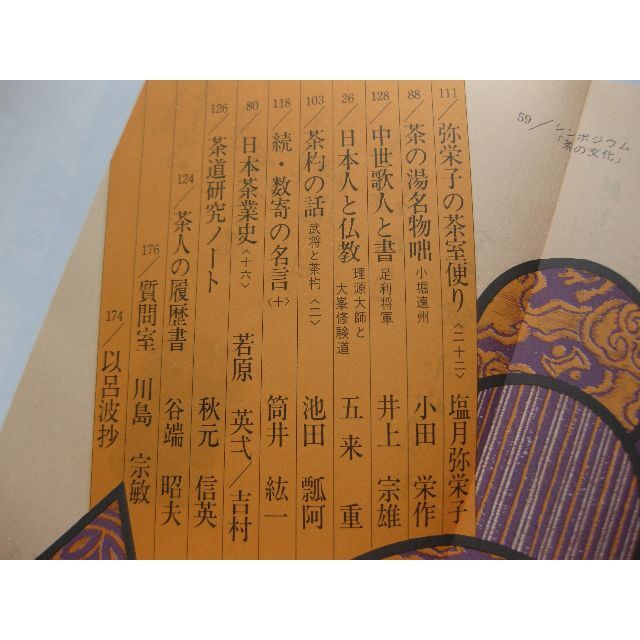 59/シンポジウム
「茶の文化」
111/弥栄子の茶室便り〈二十二〉 塩月弥栄子
88/茶の湯名物咄 小堀遠州 小田 栄作
128/中世歌人と書 足利将軍 井上 宗雄
26/日本人と仏教 理源大師と大峯修験道 五来 重
103/茶杓の話 武将と茶杓〈二〉 池田 瓢阿
118/続・数寄の名言〈十〉 筒井 紘一
80/日本茶業史〈十六〉 若原 英弌/吉村
126/茶道研究ノート 秋元 信英
124/茶人の履歴書 谷端 昭夫
176/質問室 川島 宗敏
174/以呂波抄